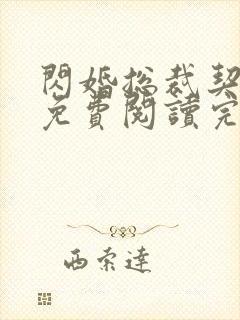 閃婚總裁契
免費閱讀完
西索達